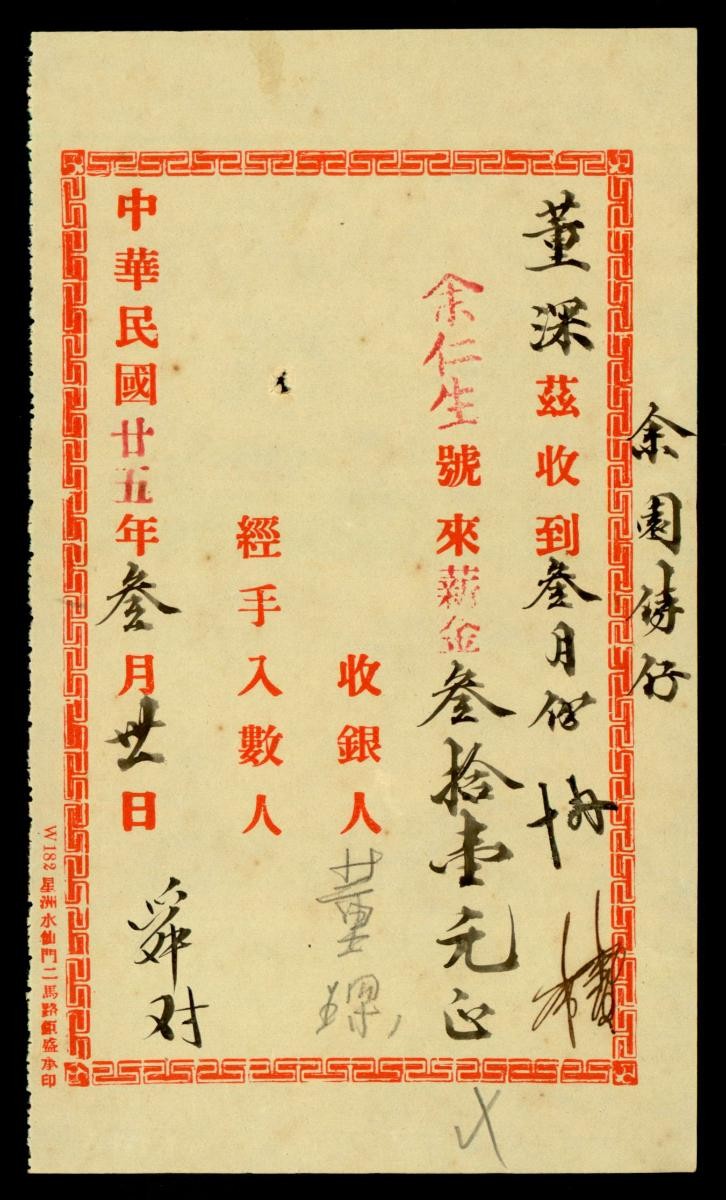 余園鋳仔
董深茲收到叁月份
余仁生號來薪金叁拾壹元正
收銀人董
經手入數人
中華民國廿五年叁月卅日
舜对
W182星洲水仙門二馬路銀盛承印